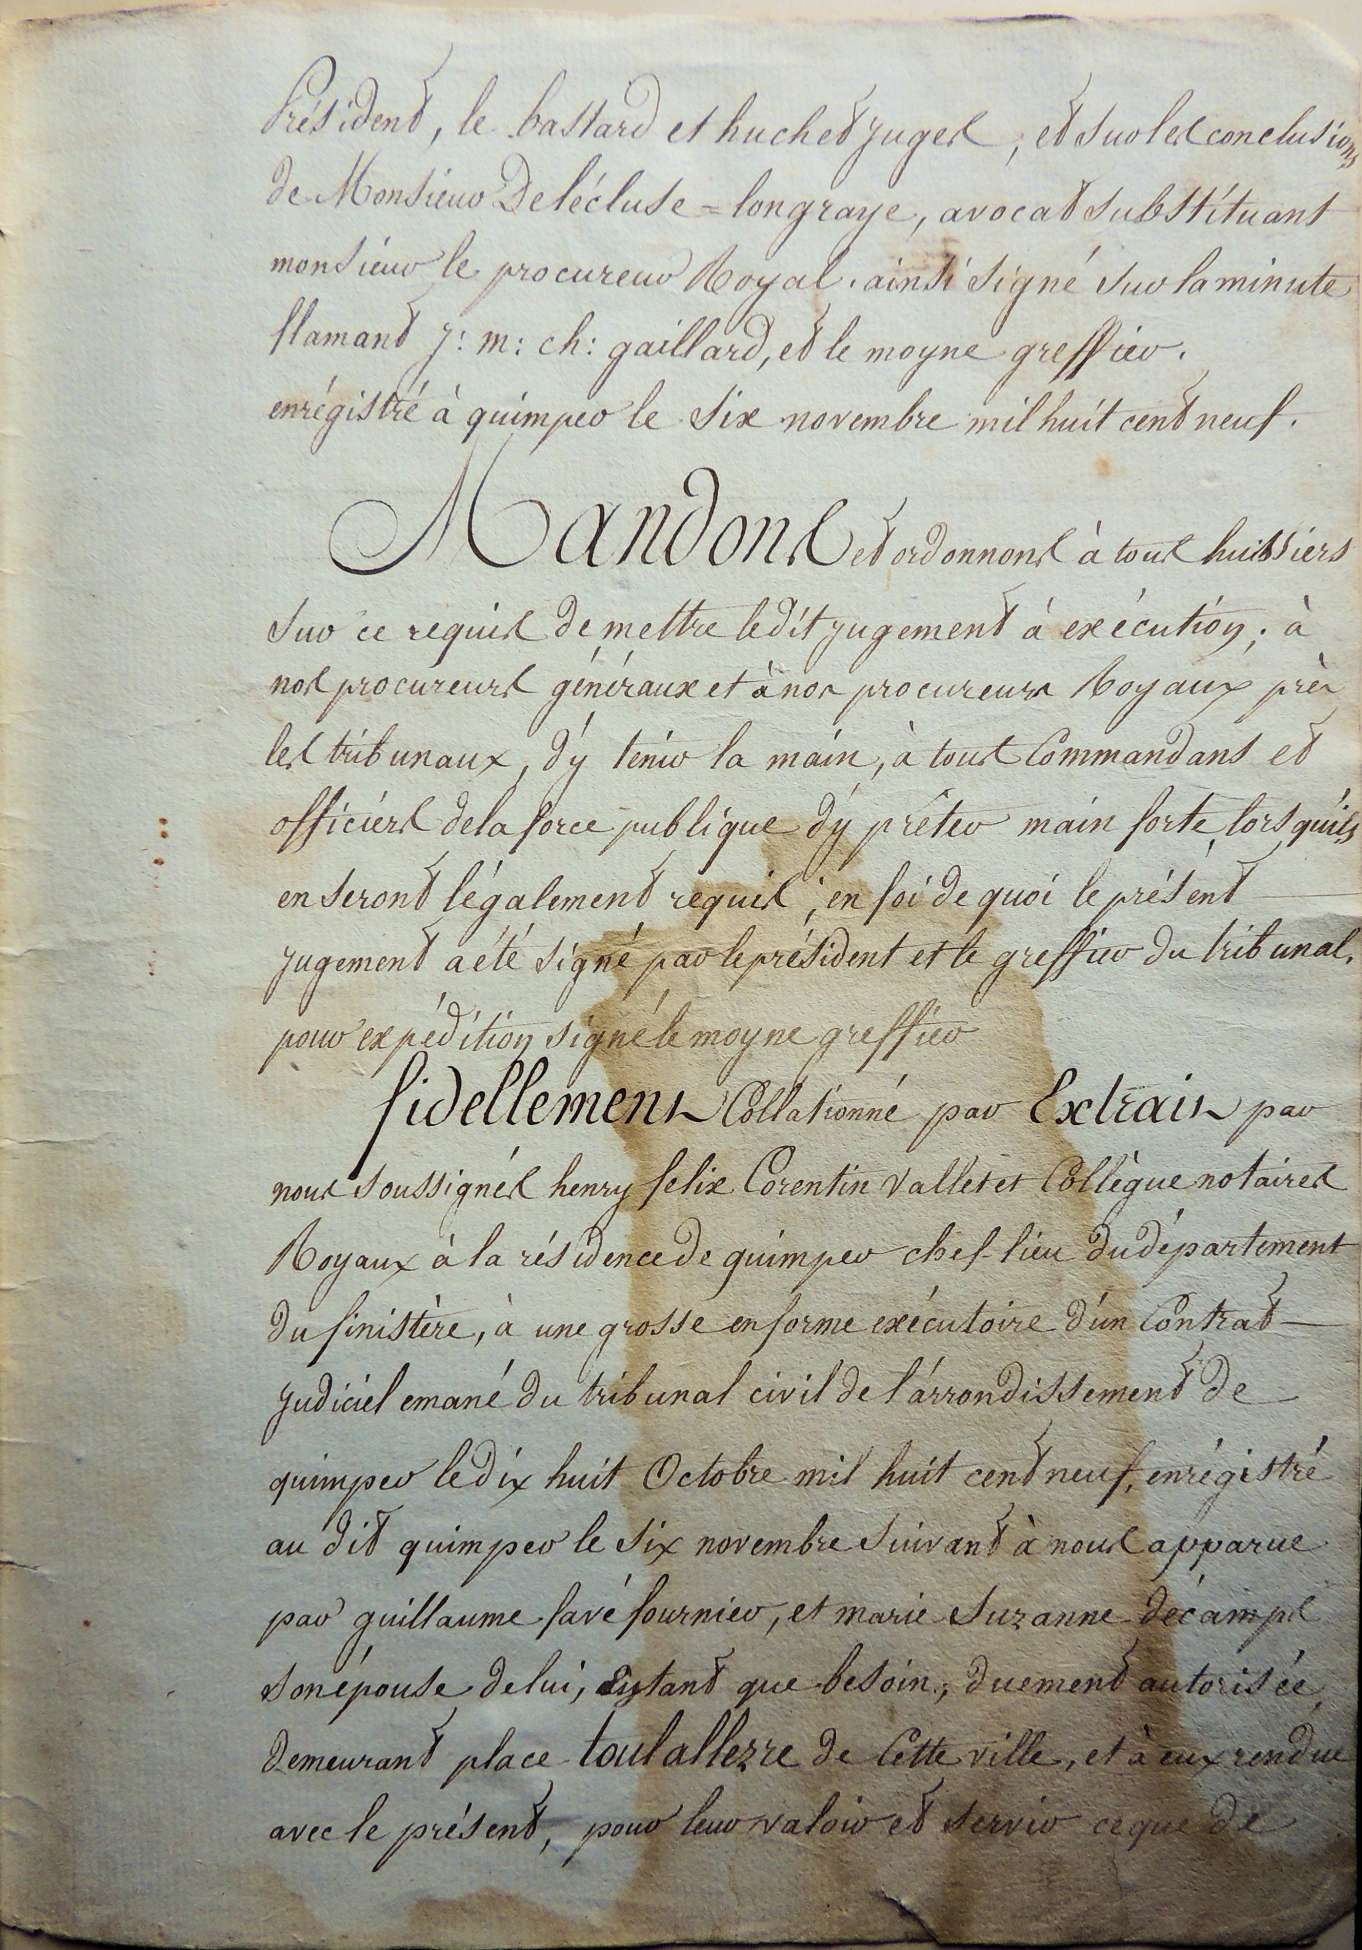 Président, le bastard et huchet juges, et sur les conclusions
de Monsieur Delécluse = longraye, avocat substituant
monsieur le procureur Royal. ainsi signé sur la minute
flamant j: m: ch: gaillard, et le moyne greffier.
enrégistré à quimper le six novembre mil huit cent neuf.
Mandons et ordonnons à tous huissiers
sur ce requis de mettre ledit jugement à exécution; à
nos procureurs généraux et à nos procureurs Royaux près
les tribunaux, d'y tenir la main, à tous Commandans et
officiers de la force publique d'y prêter main forte, lorsqu'ils
en seront légalement requis; en foi de quoi le présent
jugement a été signé par le président et le greffier du tribunal.
pour expédition signé le moyne greffier
fidellement Collationné par Extrait par
nous soussignés henry felix Corentin vallet et Collègue notaires
Royaux à la résidence de quimper chef-lieu du département
du finistère, à une grosse en forme exécutoire d'un Contrat
judiciel emané du tribunal civil de l'arrondissement de
quimper le dix huit Octobre mil huit cent neuf, enrégistré
au dit quimper le six novembre suivant à nous apparue
par guillaume favé fournier, et marie suzanne décamps
son épouse de lui, autant que besoin, duement autorisée,
demeurant place toulallezre de Cette ville, et à eux rendue
avec le présent, pour leur valoir et servir ce que de